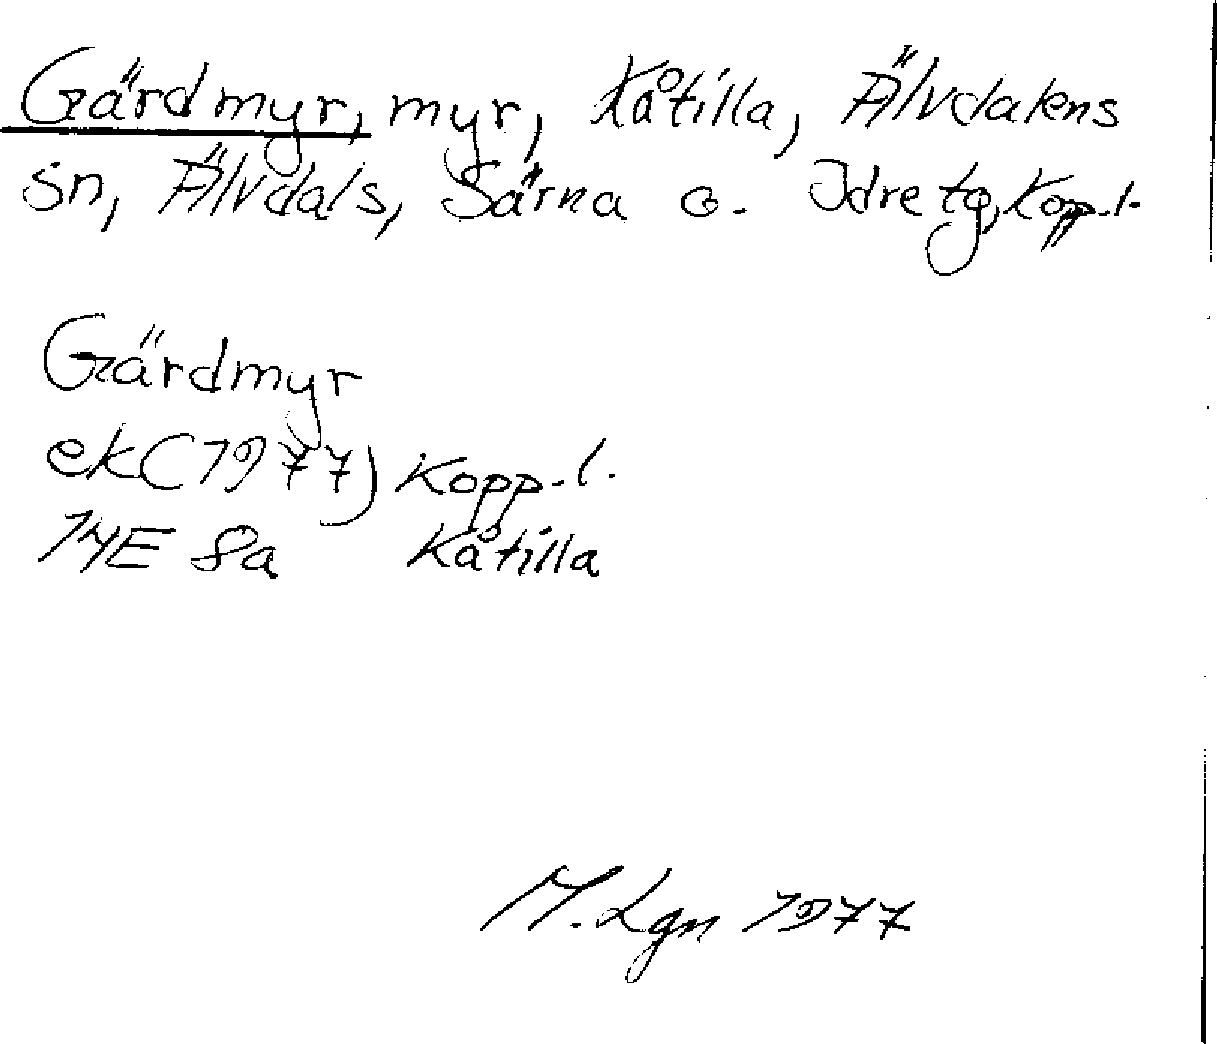 Gärdmyr, myr, Kåtilla, Älvdalens
sn, Älvdals, Särna o. Idre tg, Kopp.l.
Gärdmyr
ek (1977) Kopp.l.
14E 8a Kåtilla
M. Lgn 1977